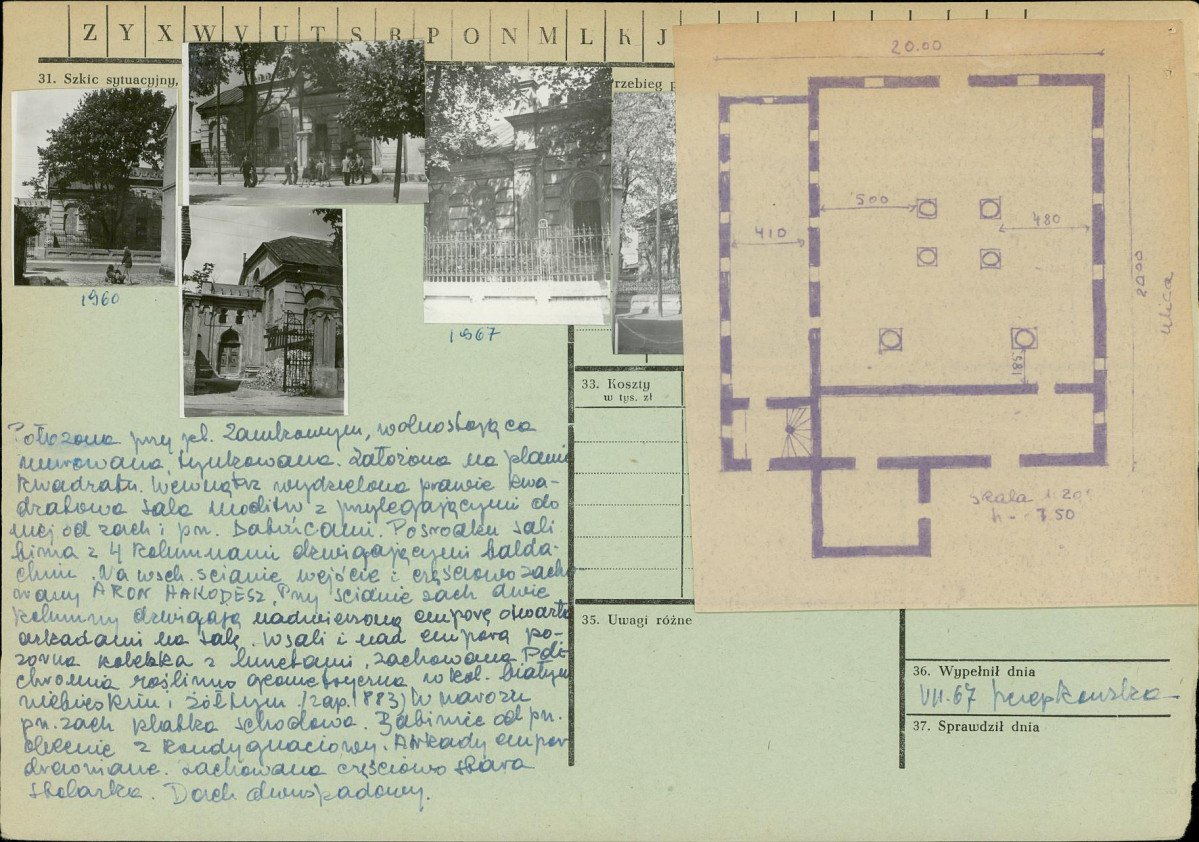 Z Y X W V U T S R P O N M L K J
31. Szkic sytuacyjny,
rzebieg p
1960
1967
33. Koszty
w tys. zł
35. Uwagi różne
36. Wypełnił dnia
VII.67
37. Sprawdził dnia
20.00
500
480
410
185
20.00
ulica
skala 1:20
h - 7.50
Położona przy pl. Zamkowym, wolnostojąca
murowana, tynkowana. Założona na planie
kwadratu. Wewnątrz wydzielona prawie kwa-
dratowa sala modlitw z przylegającymi do
niej od zach i pn. babińcami. Pośrodku sali
bima z 4 kolumnami dźwigającymi balda-
chim. Na wsch. ścianie wejście i częściowo zacho
wany ARON HAKODESZ. Przy ścianie zach dwie
kolumny dźwigają nadwieszoną emporę otwartą
arkadami na salę. W sali i nad emporą po-
zorna kolebka z lunetami, zachowana poli
chromia roślinno geometryczna w kol. białym
niebieskim i żółtym /zap. 1883/ W narożu
pn. zach klatka schodowa. Babiniec od pn.
obecnie 2 kondygnaciowy. Arkady empor
drewniane. Zachowana częściowo stara
stolarka. Dach dwuspadowy.